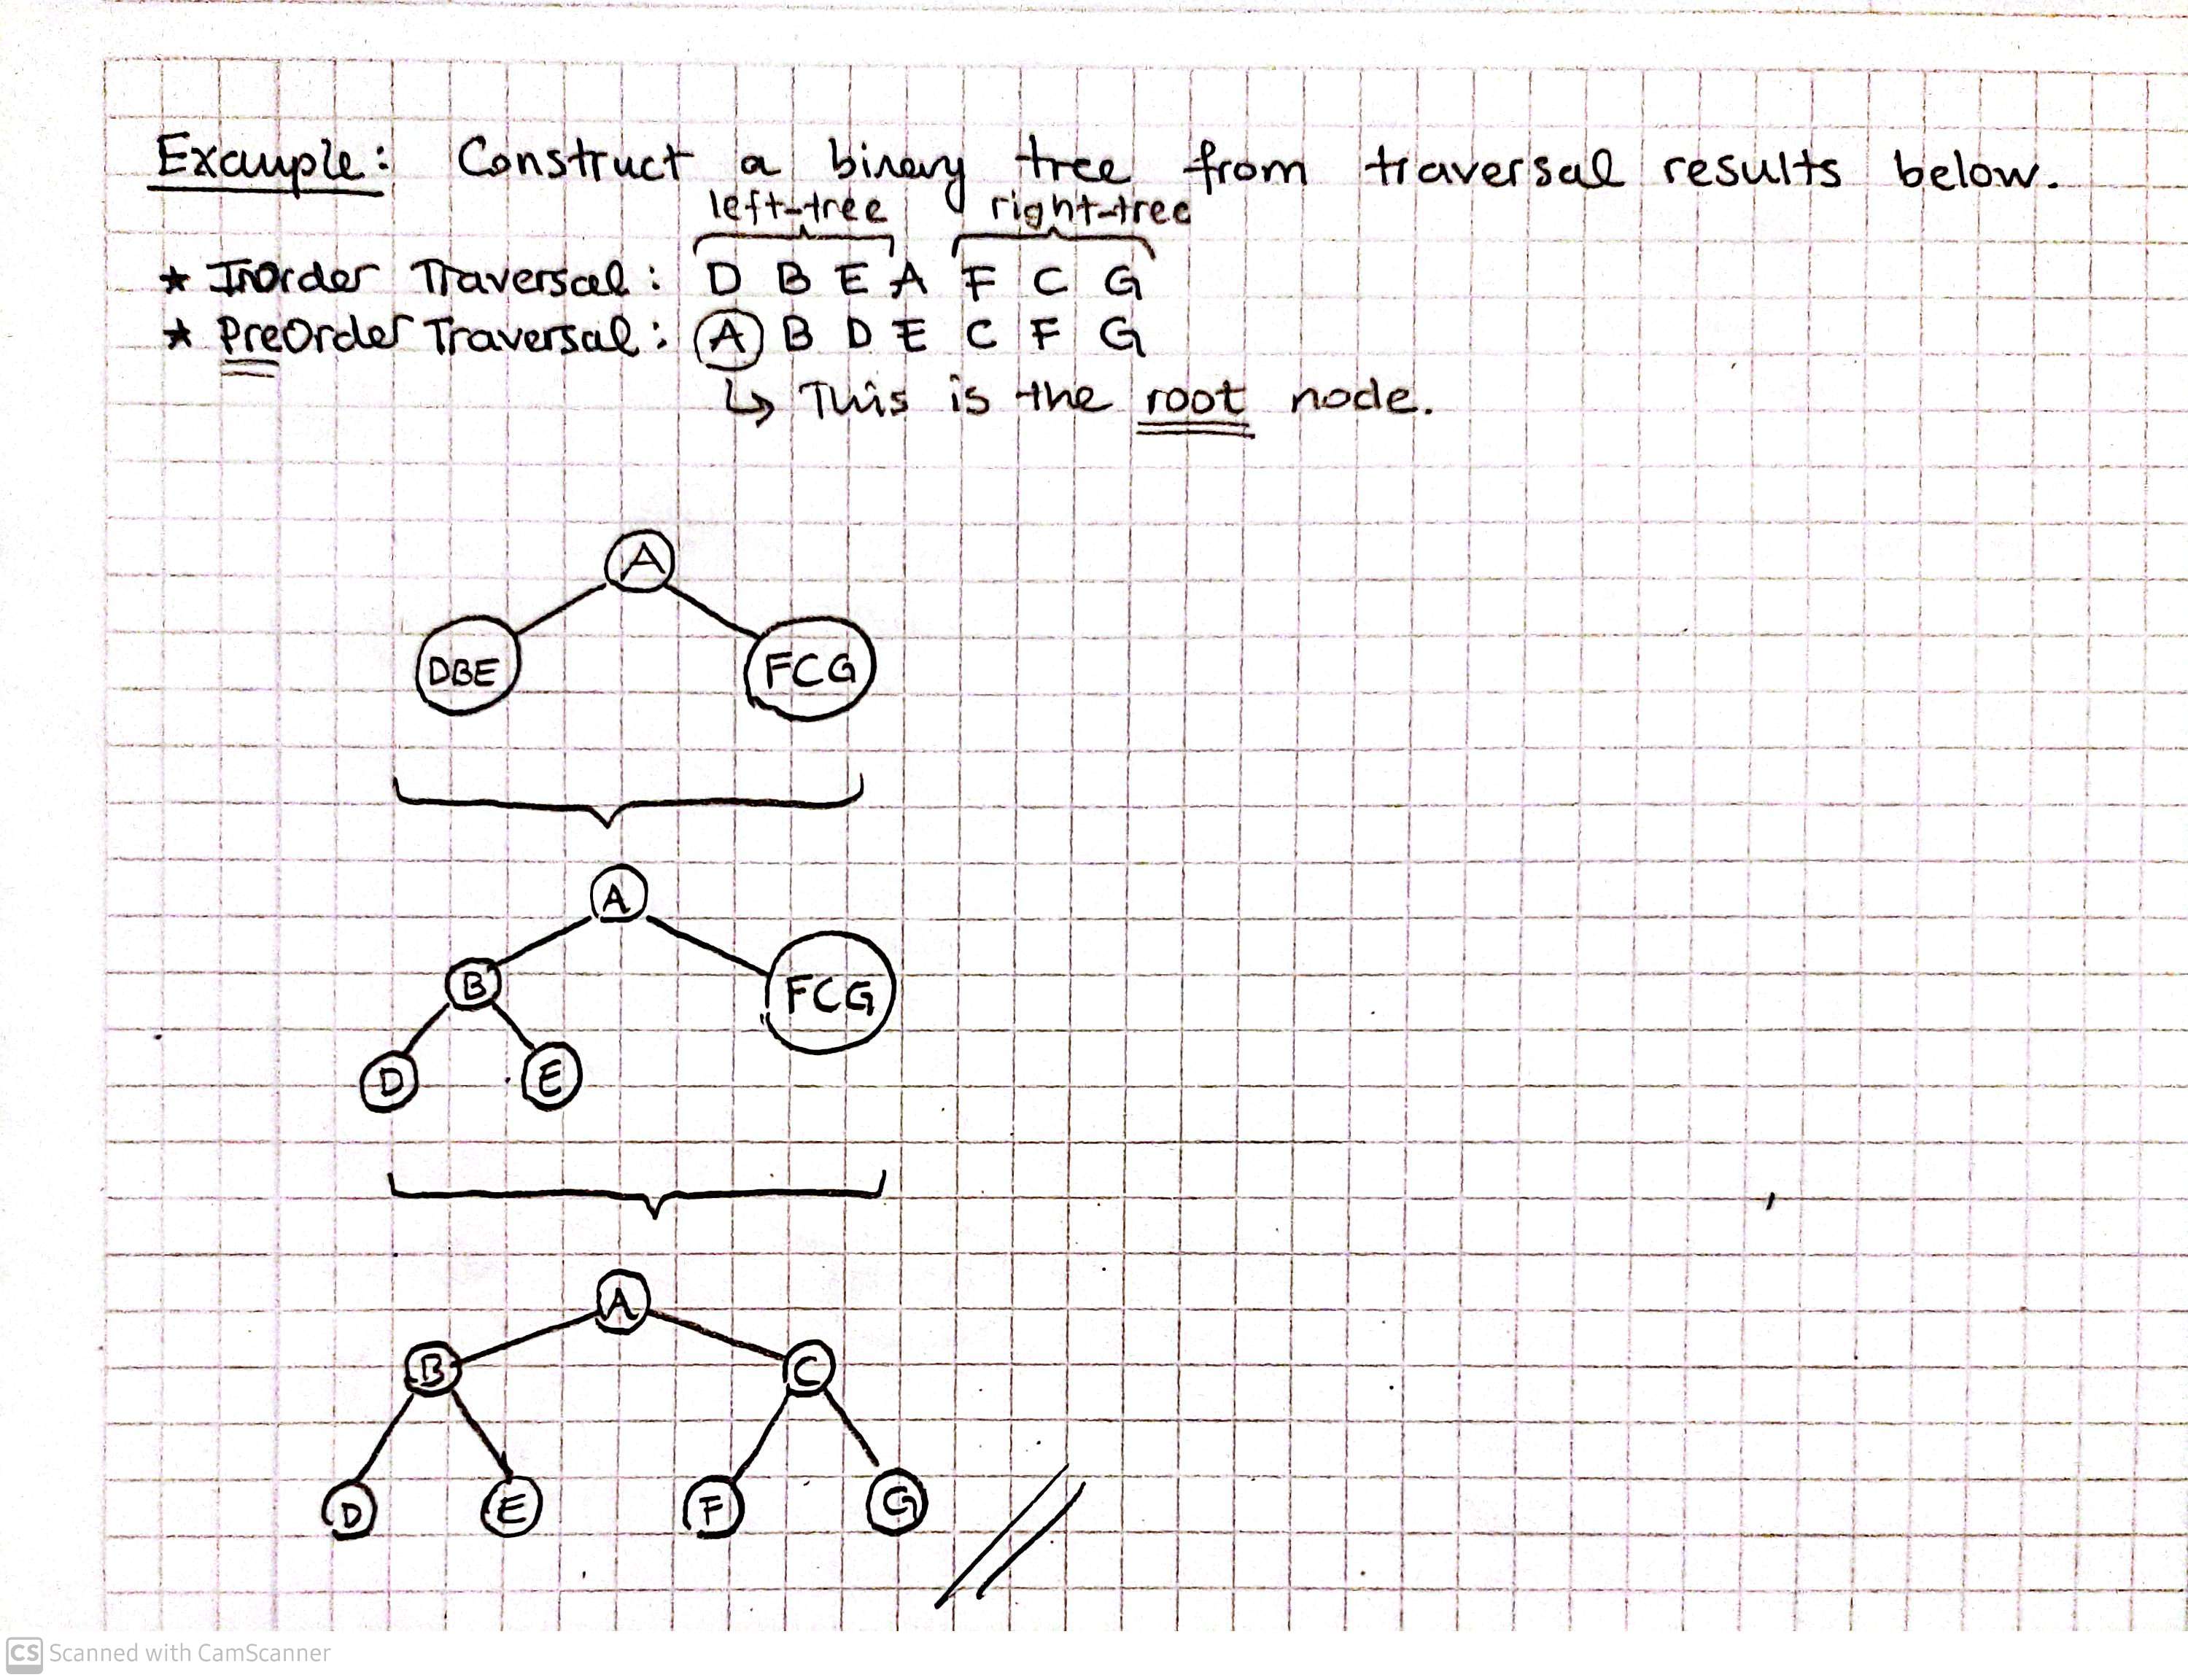 Example: Construct a binary tree from traversal results below.
left-tree right-tree
* Inorder Traversal: D B E A F C G
* PreOrder Traversal: A B D E C F G
↳ This is the root node.
A
DBE FCG
A
B FCG
D E
A
B C
D E F G
CS Scanned with CamScanner